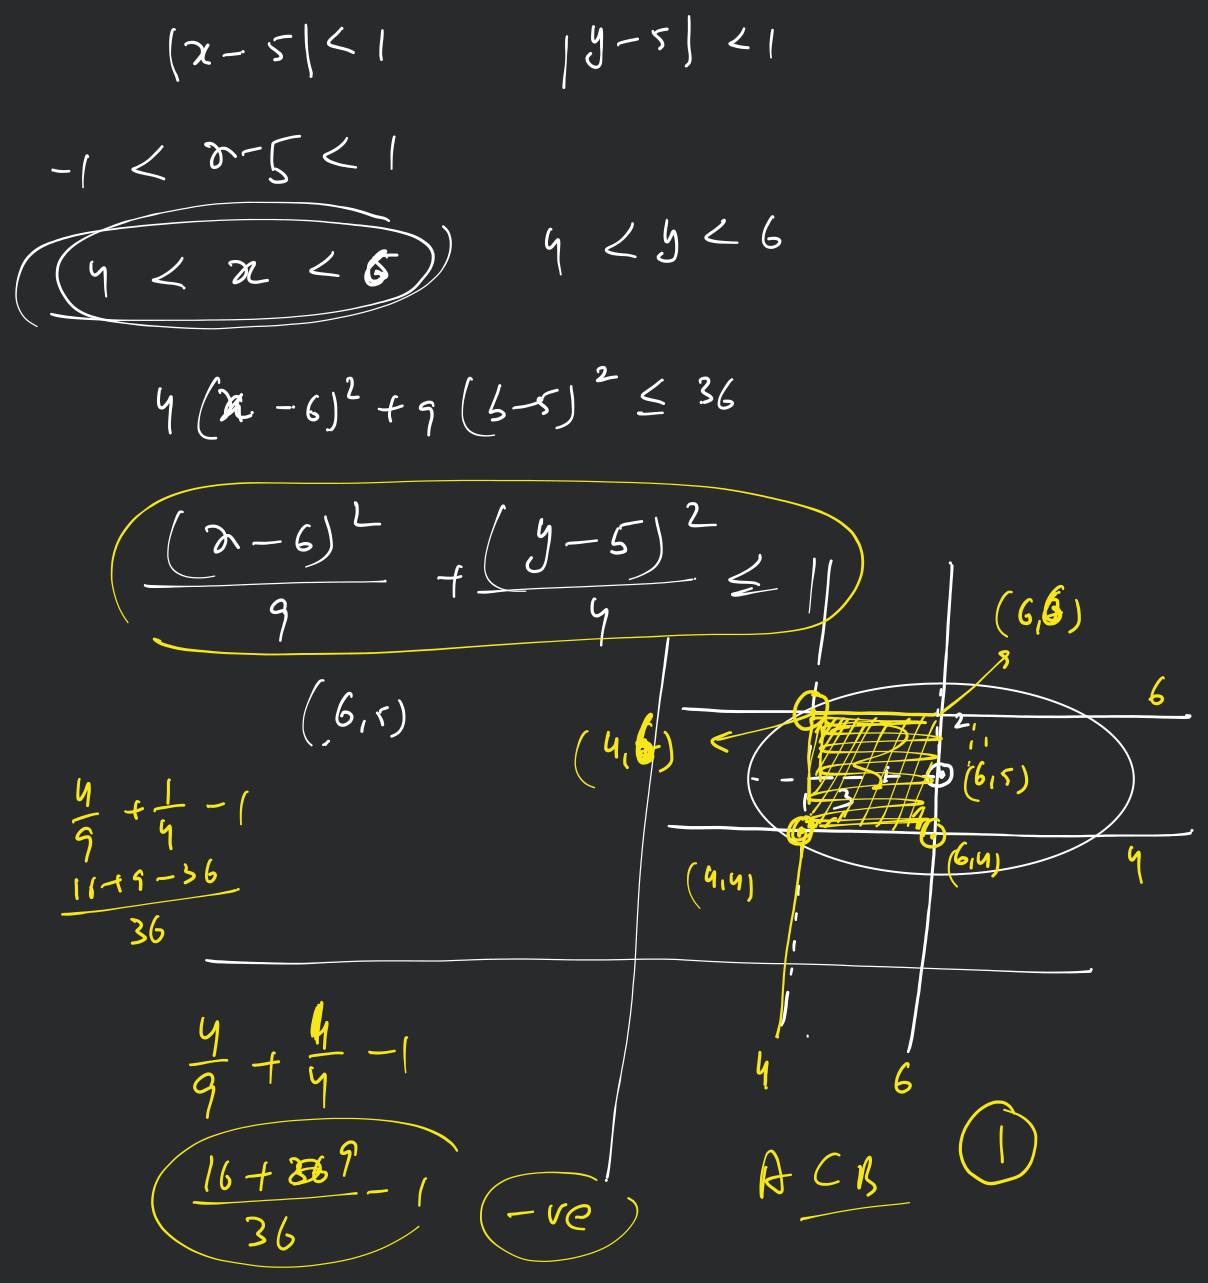 |x-5|<1 |y-5|<1
-1 < x-5 < 1
4 < x < 6 4 < y < 6
4(x-6)² + 9(b-5)² ≤ 36
(x-6)²/9 + (y-5)²/4 ≤ 1
(6,5)
(6,6)
6
(4,6)
2
(6,5)
3
4/9 + 1/4 - 1
(4,4) (6,4) 4
16+9-36/36
4/9 + 4/4 - 1
4 6
16+9/36 - 1
-ve
A C B
1